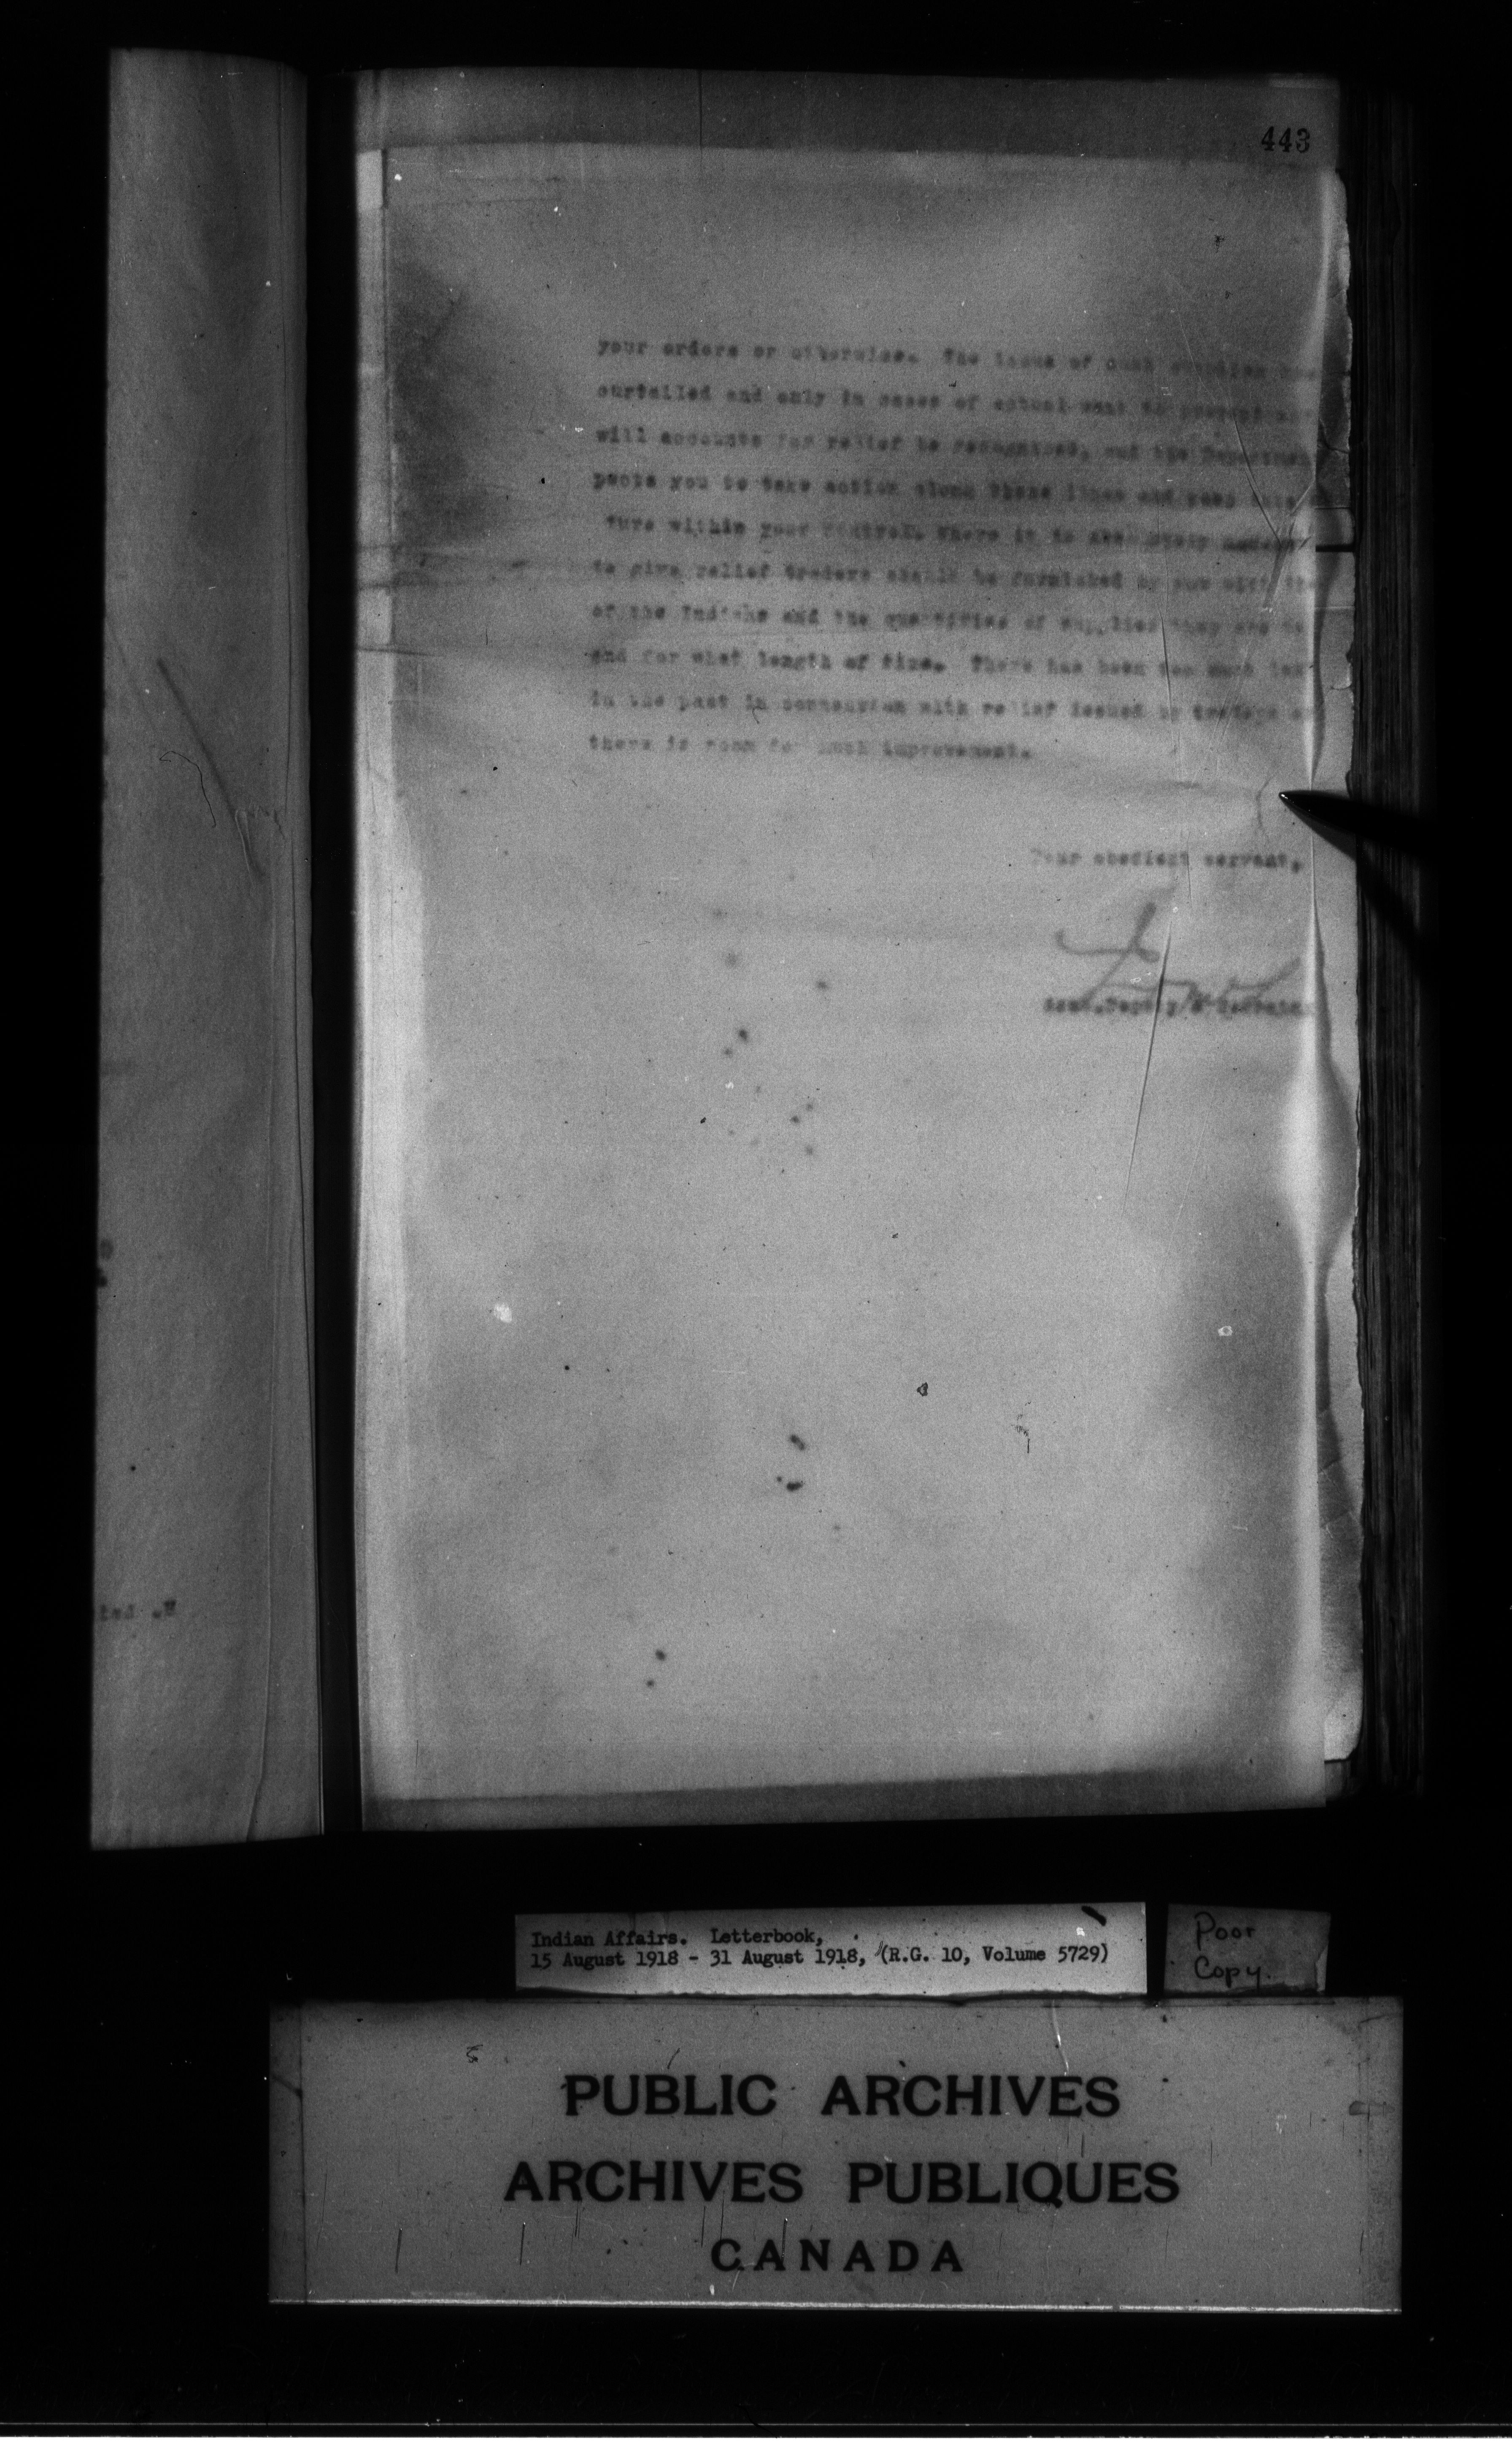 443
your orders or otherwise. The issue of such supplies
curtailed and only in cases of actual want to prevent
will accounts for relief be recognized, and the Departmen
pects you to take action along these lines and keep this
ture within your control. Where it is absolutely necessar
to give relief traders should be furnished by you with the
of the Indians and the quantities of supplies they are to
and for what length of time. There has been too much lax
in the past in connection with relief issued by traders
there is room for much improvement.
Your obedient servant,
Asst. Deputy &
ted .M
Indian Affairs. Letterbook,
15 August 1918 - 31 August 1918, (R.G. 10, Volume 5729)
Poor
Copy.
PUBLIC ARCHIVES
ARCHIVES PUBLIQUES
CANADA